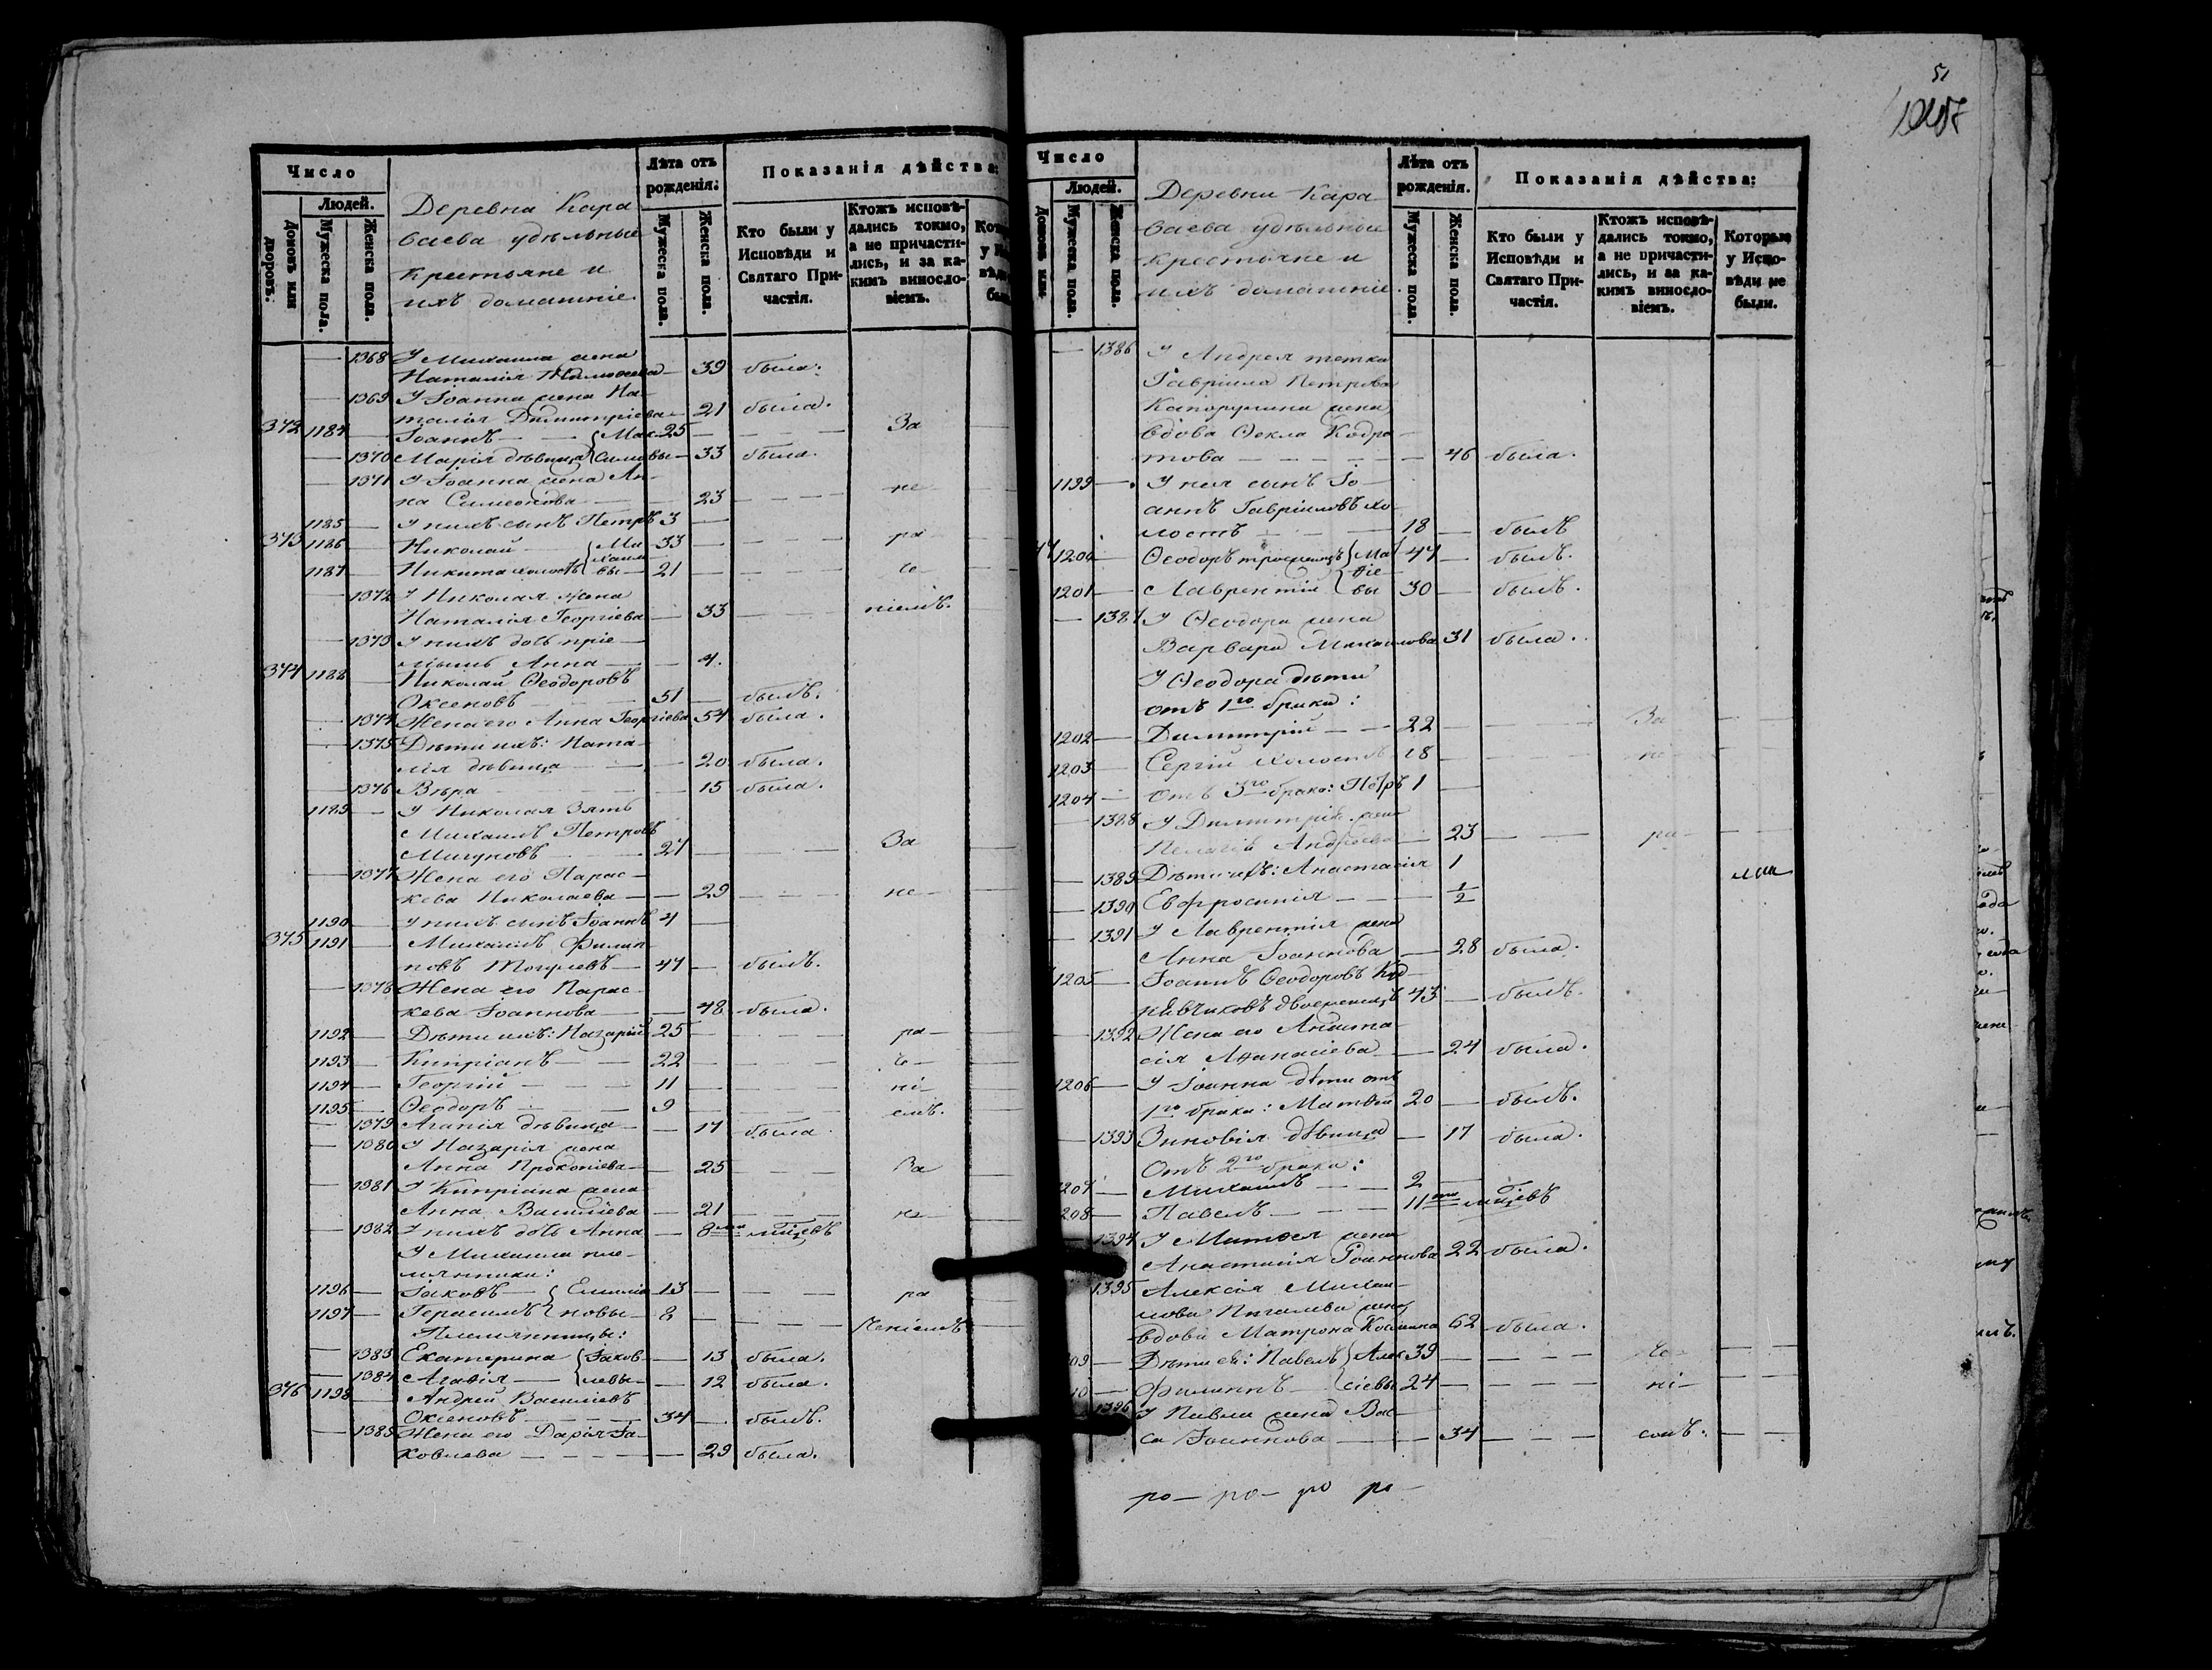 51
Число
Людей.
Домовъ или дворовъ.
Мужеска пола.
Женска пола.
Деревня Кара
ваева удѣльные
крестьяне и
ихъ домашніе
Лѣта отъ рожденія.
Мужеска пола.
Женска пола.
Показанія дѣйства:
Кто были у Исповѣди и Святаго Причастія.
Ктожъ исповѣдались токмо, а не причастились, и за какимъ винословіемъ.
1368 У Михаила жена
Наталія 39 была.
1369 У Іоанна жена На-
талія Димитріева 21 была.
372 1184 Іоаннъ Мак 25 За
1370 Марія дѣвица симовы 33 была.
1371 У Іоанна жена Ан-
на Симеонова 23 не
1185 У нихъ сынъ Петръ 3
373 1186 Николай Ми 33 ра
1187 Никита холостъ хаиловы 21 че
1372 У Николая жена
Наталія Георгіева 33 ніемъ.
1373 У нихъ дочь пріе-
мышь Анна 4.
374 1188 Николай Ѳеодоровъ
Оксеновъ 51 былъ.
1374 Жена его Анна Георгіева 54 была.
1375 Дѣти ихъ: Ната-
лія дѣвица 20 была.
1376 Вѣра 15 была.
1189 У Николая зять
Михаилъ Петровъ
Мигуновъ 27 За
1377 Жена его Парас-
кева Николаева 29 не
1190 У нихъ сынъ Іоаннъ 4
375 1191 Михаилъ Филип
повъ 47 былъ.
1378 Жена его Парас-
кева Іоаннова 48 была.
1192 Дѣти ихъ: Назарій 25 ра
1193 Кипріанъ 22 че
1194 Георгій 11 ні
1195 Ѳеодоръ 9 емъ.
1379 Агапія дѣвица 17 была.
1380 У Назарія жена
Анна Прокопіева 25 За
1381 У Кипріана жена
Анна Василіева 21 не
1382 У нихъ дочь Анна 8ми мцевъ
У Михаила пле-
мянники:
1196 Іаковъ Емилія 13 ра
1197 Герасимъ новы 8 ченіемъ
Племянницы:
1383 Екатерина Іаков 13 была.
1384 Агаѳія левы 12 была.
376 1198 Андрей Василіевъ
Оксеновъ 34 былъ.
1385 Жена его Дарія Іа-
ковлева 29 была.
Число
Людей.
Домовъ или
Мужеска пола.
Женска пола.
Деревни Кара
ваева удѣльные
крестьяне и
ихъ домашніе.
Лѣта отъ рожденія.
Мужеска пола.
Женска пола.
Показанія дѣйства:
Кто были у Исповѣди и Святаго Причастія.
Ктожъ исповѣдались токмо, а не причастились, и за какимъ винословіемъ.
Которые у Исповѣди не были.
1386 У Андрея тетка
Гавріила Петрова
жена
вдова Ѳекла Кодра-
това 46 была.
1199 У нея сынъ Іо-
аннъ Гавріиловъ хо-
лостъ 18 былъ
1200 Ѳеодоръ троеженецъ Мат 47 былъ.
1201 Лаврентій ѳіевы 30 былъ.
1387 У Ѳеодора жена
Варвара Михаилова 31 была.
У Ѳеодора дѣти
отъ 1го брака:
1202 Димитрій 22 За
1203 Сергій холостъ 18 не
1204 Отъ 3го брака: Петръ 1
1388 У Димитрія жена
Пелагія Андреева 23 ра
1389 Дѣти ихъ: Анастасія 1
1390 Евфросинія 1/2
1391 У Лаврентія жена
Анна Іоаннова 28 была.
1205 Іоаннъ Ѳеодоровъ
двоеженецъ 43 былъ.
1392 Жена его Анаста-
сія Аѳанасіева 24 была.
1206 У Іоанна дѣти отъ
1го брака: Матѳей 20 былъ.
1393 Зиновія дѣвица 17 была.
Отъ 2го брака:
1207 Михаилъ 2
1208 Павелъ 11ти мцевъ
1394 У Матѳея жена
Анастасія Іоаннова 22 была.
1395 Алексія Михаи-
лова жена
вдова Матрона Козмина 62 была.
09 Дѣти ея: Павелъ Алек 39 че
10 Филиппъ сіевы 24 ні
1396 У Павла жена Вас-
са Іоаннова 34 емъ.
ро- ро- ро ро-